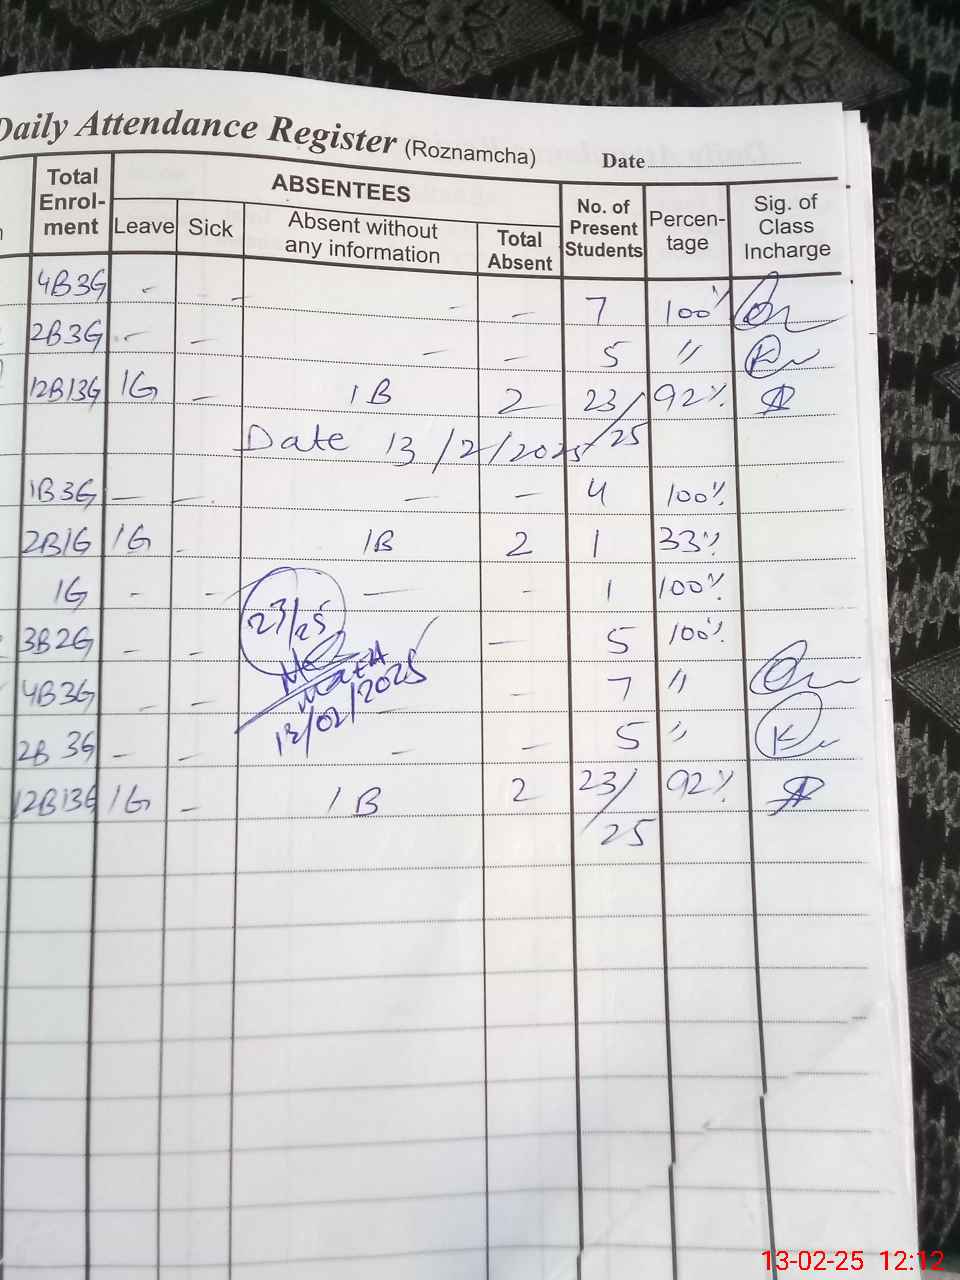 Daily Attendance Register (Roznamcha) Date
Total Enrol-ment ABSENTEES No. of Present Students Percen-tage Sig. of Class Incharge
Leave Sick Absent without any information Total Absent
4B3G - - - - 7 100%
2B3G - - - - 5 "
12B13G 1G - 1B 2 23/25 92%
Date 13/2/2025
1B3G - - - - 4 100%
2B1G 1G - 1B 2 1 33%
1G - - - - 1 100%
23/25
3B2G - - - 5 100%
4B3G - - - - 7 "
13/02/2025
2B 3G - - - - 5 "
12B13G 1G - 1B 2 23/25 92%
13-02-25 12:12